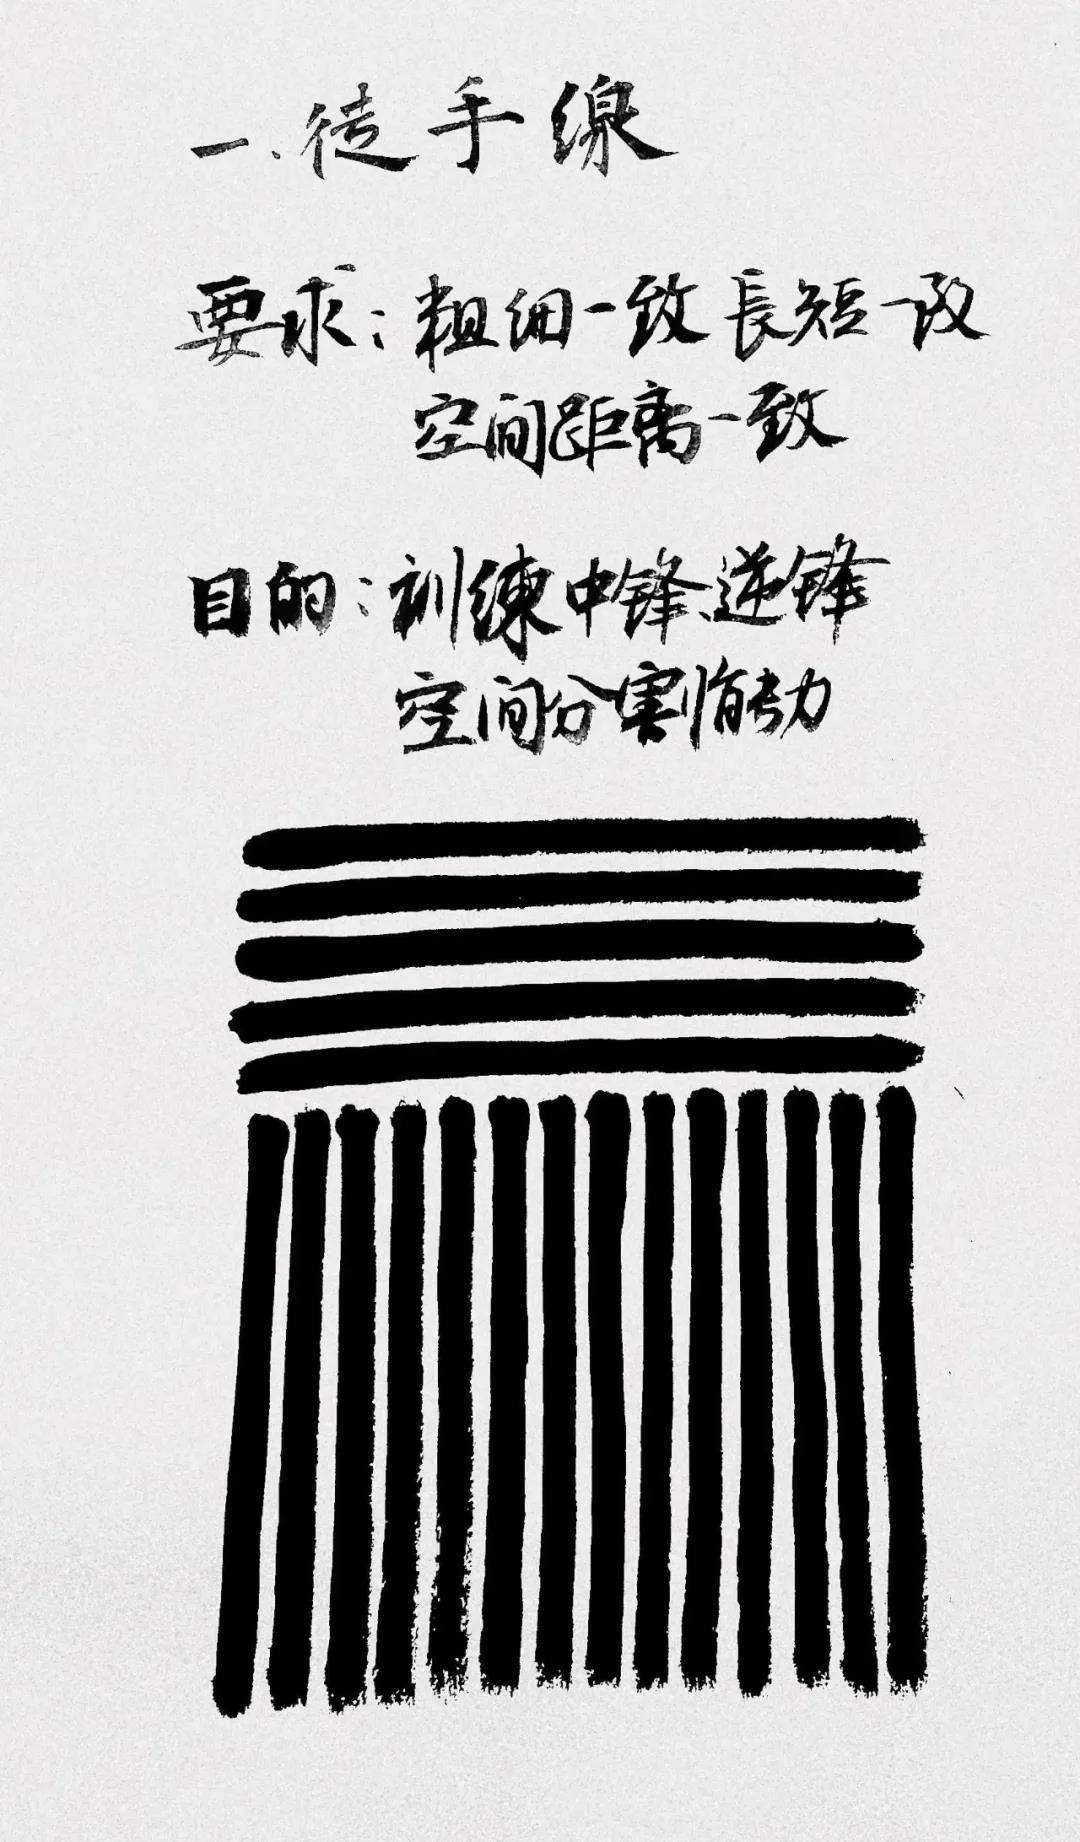 一、徒手線
要求：粗细一致長短一致
空间距离一致
目的：训練中锋、逆锋
空间分割能力